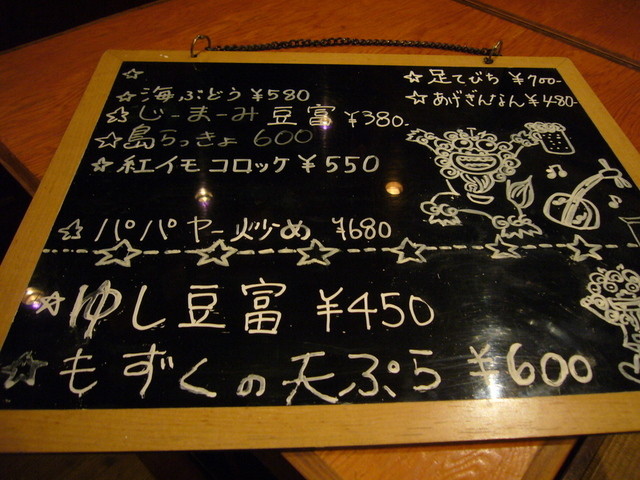 ☆海ぶどう ¥580
☆じーまーみ豆富 ¥380-
☆島らっきょ 600
☆紅イモコロッケ ¥550
☆パパヤー炒め ¥680
☆足てびち ¥700-
☆あげぎんなん ¥480-
☆ゆし豆富 ¥450
☆もずくの天ぷら ¥600